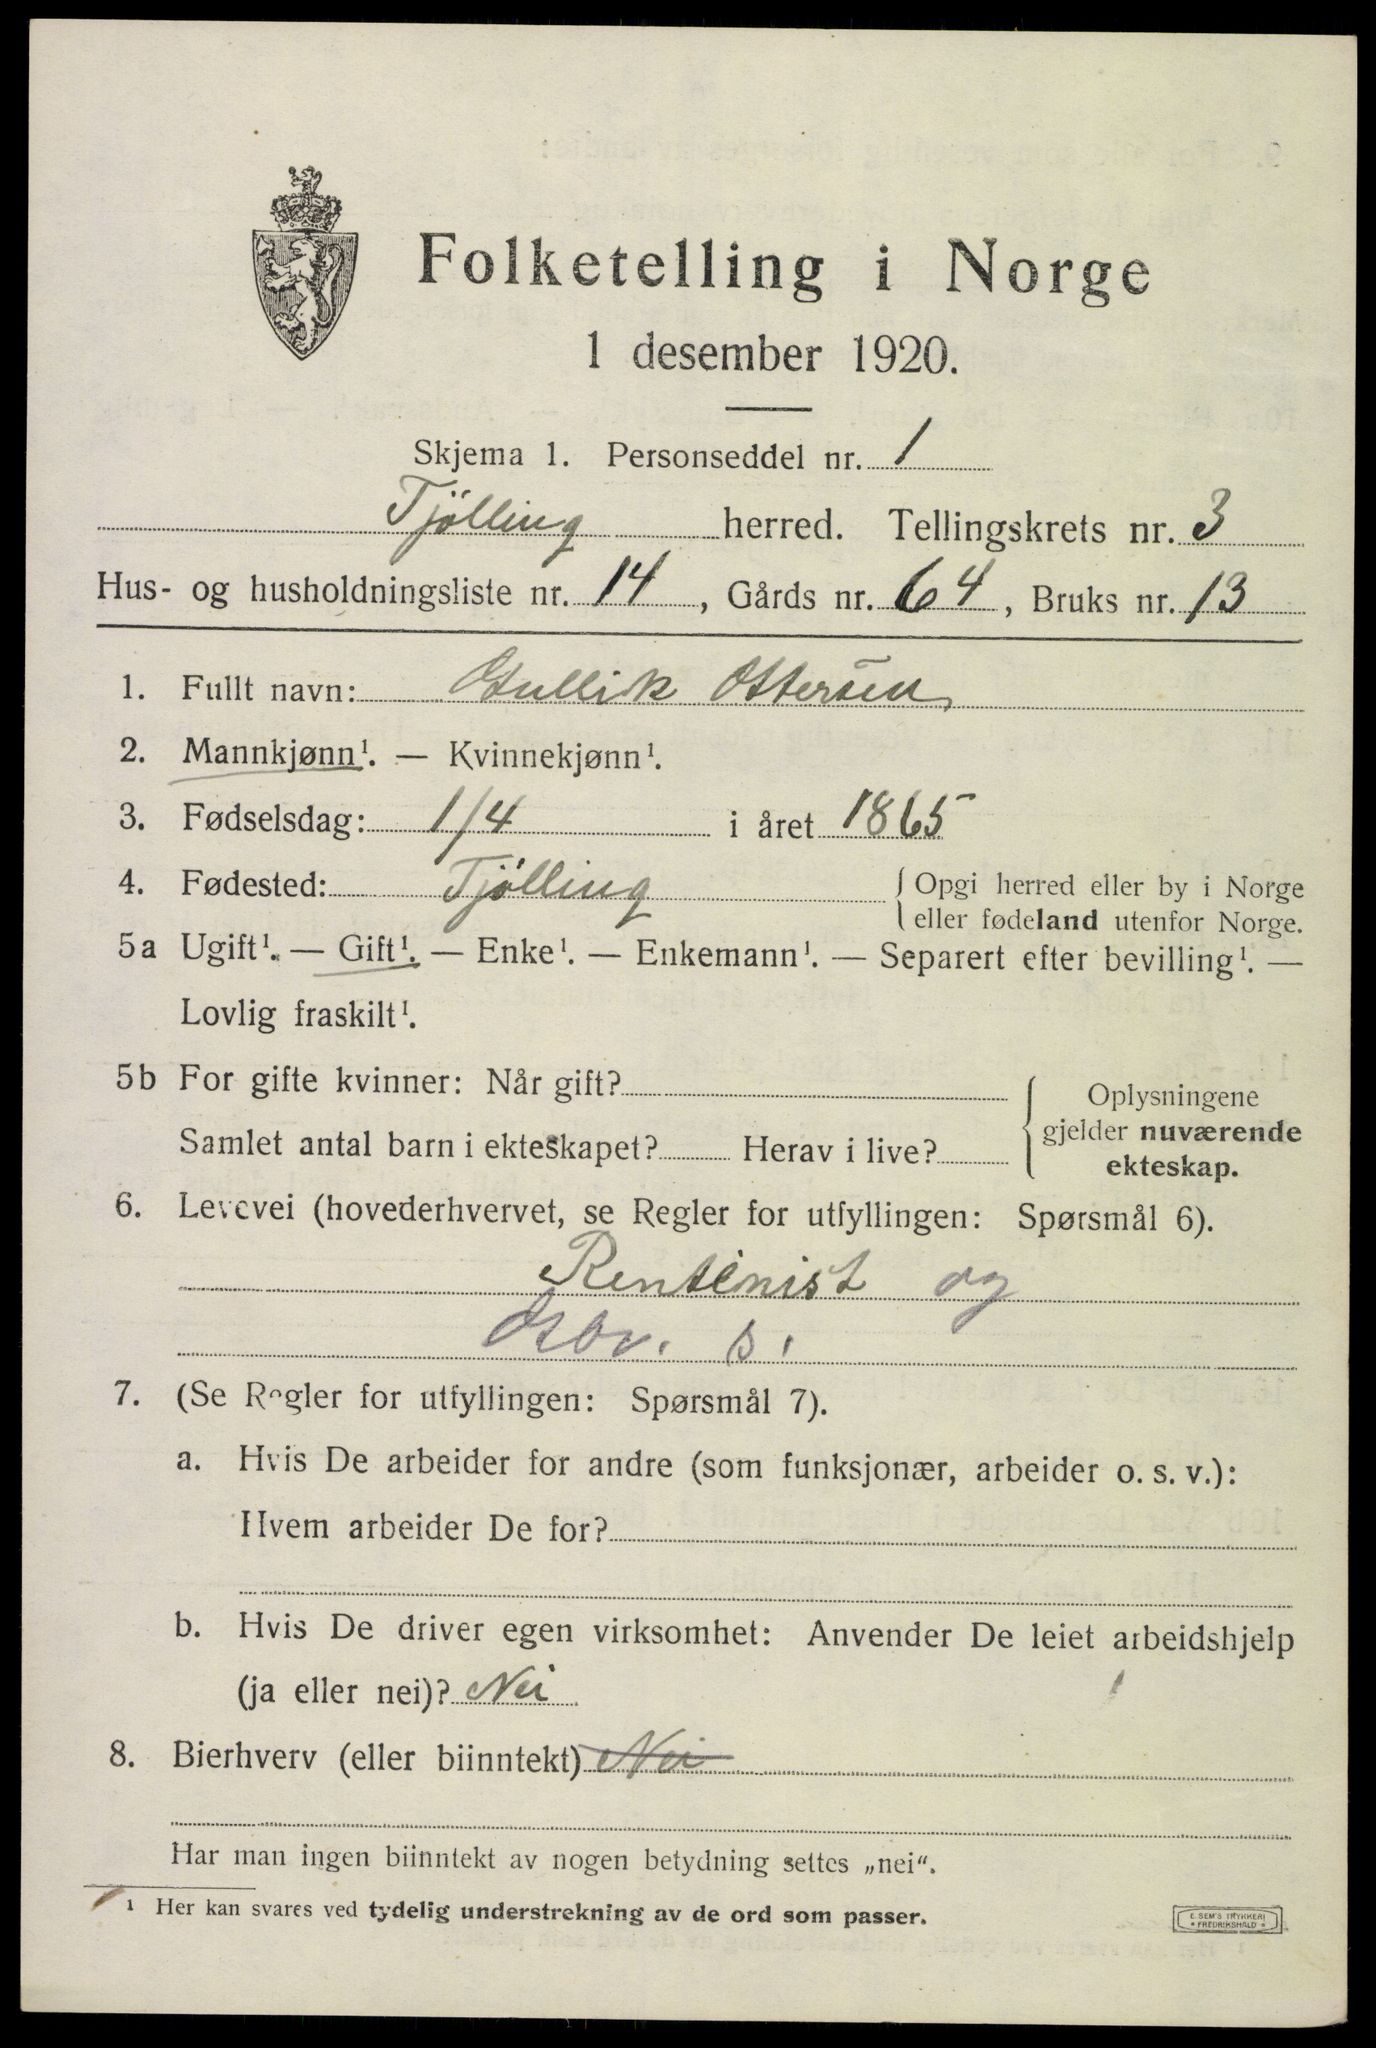 Folketelling i Norge
1 desember 1920.
Skjema 1. Personseddel nr. 1
Tjölling herred. Tellingskrets nr. 3
Hus- og husholdningsliste nr. 14, Gårds nr. 64, Bruks nr. 13
1. Fullt navn: Gullik Ottersen
2. Mannkjønn¹. — Kvinnekjønn¹.
3. Fødselsdag: 1/4 i året 1865
4. Fødested: Tjölling { Opgi herred eller by i Norge
eller fødeland utenfor Norge.
5a Ugift¹. — Gift¹. — Enke¹. — Enkemann¹. — Separert efter bevilling¹. —
Lovlig fraskilt¹.
5b For gifte kvinner: Når gift? { Oplysningene
gjelder nuværende
Samlet antal barn i ekteskapet? Herav i live?
ekteskap.
6. Levevei (hovederhvervet, se Regler for utfyllingen: Spørsmål 6).
Rentenist og
s.
7. (Se Regler for utfyllingen: Spørsmål 7).
a. Hvis De arbeider for andre (som funksjonær, arbeider o. s. v.):
Hvem arbeider De for?
b. Hvis De driver egen virksomhet: Anvender De leiet arbeidshjelp
(ja eller nei)? Nei
8. Bierhverv (eller biinntekt) Nei
Har man ingen biinntekt av nogen betydning settes „nei".
¹ Her kan svares ved tydelig understrekning av de ord som passer.
E. SEM'S TRYKKERI
* FREDRIKSHALD *